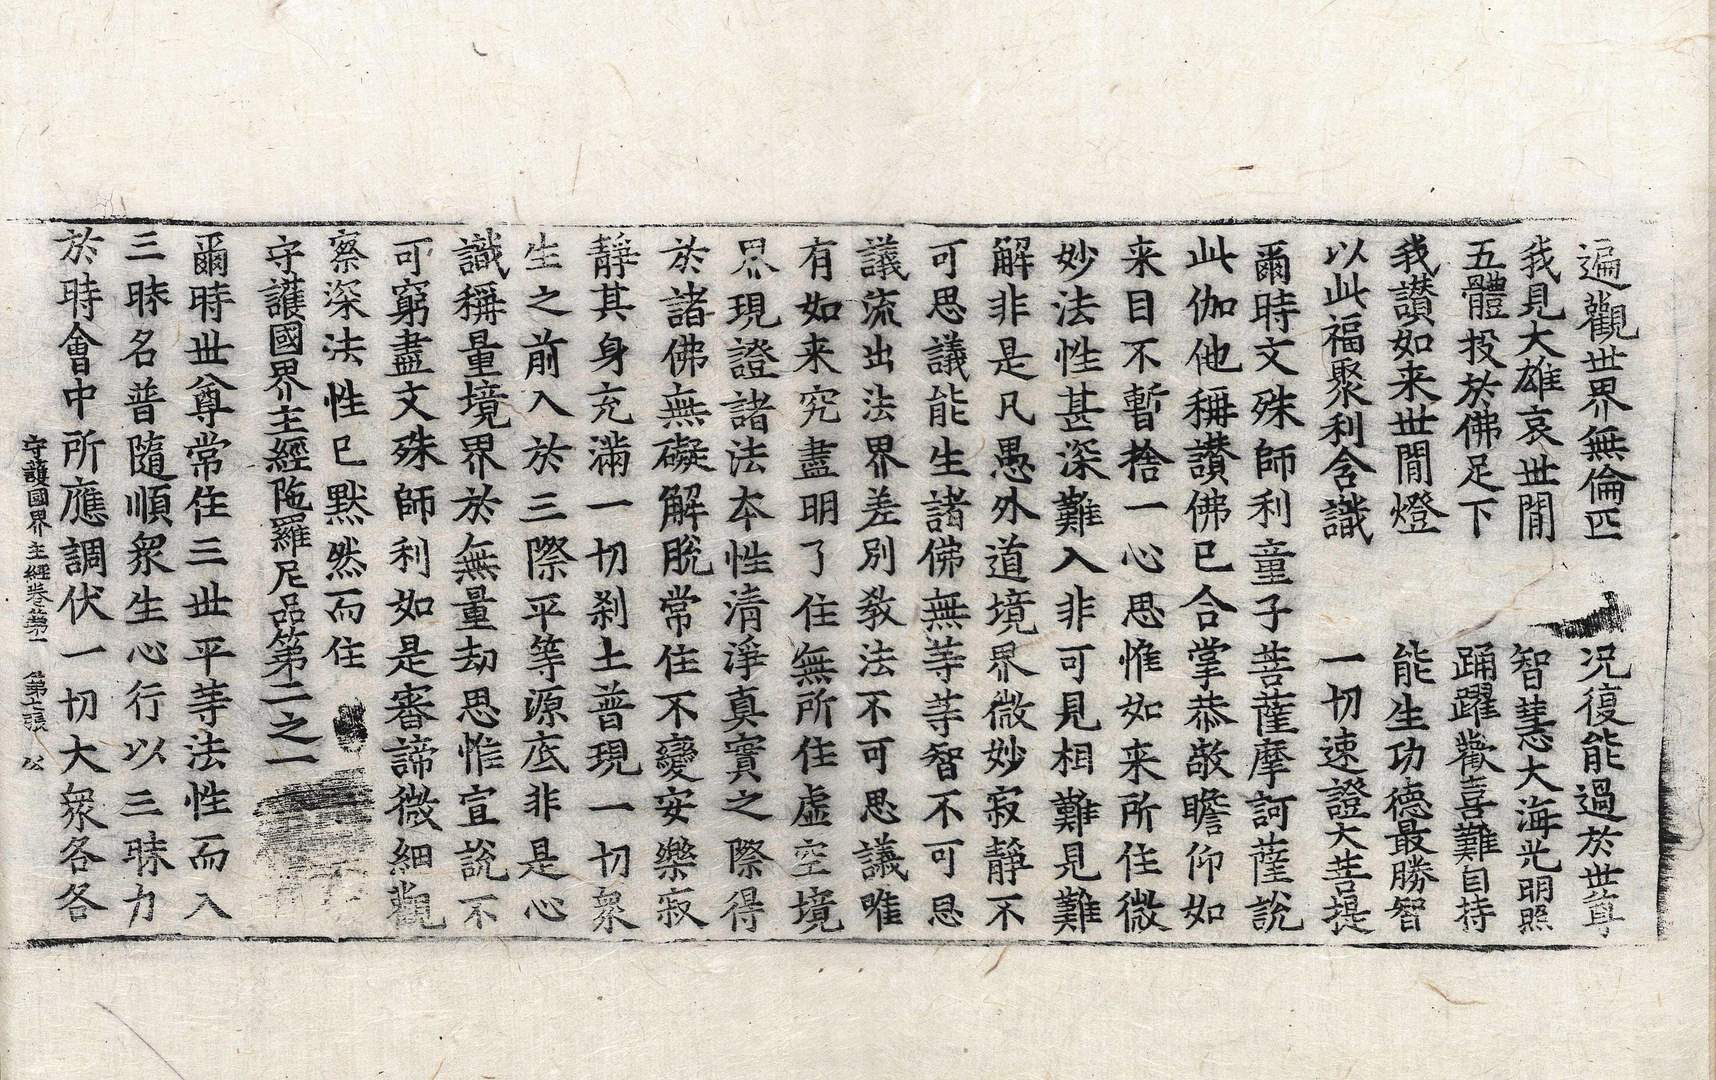 遍觀世界無倫匹　況復能過於世尊
我見大雄哀世閒　智慧大海光明照
五體投於佛足下　踊躍歡喜難自持
我讃如来世閒燈　能生功德最勝智
以此福聚利含識　一切速證大菩提
爾時文殊師利童子菩薩摩訶薩說
此伽他稱讃佛已合掌恭敬瞻仰如
来目不暫捨一心思惟如来所住微
妙法性甚深難入非可見相難見難
解非是凡愚外道境界微妙寂靜不
可思議能生諸佛無等等智不可思
議流出法界差別教法不可思議唯
有如来究盡明了住無所住虛空境
界現證諸法本性清淨真實之際得
於諸佛無礙解脫常住不變安樂寂
靜其身充滿一切剎土普現一切衆
生之前入於三際平等源底非是心
識稱量境界於無量劫思惟宣說不
可窮盡文殊師利如是審諦微細觀
察深法性已默然而住
守護國界主經陁羅尼品第二之一
爾時世尊常住三世平等法性而入
三昧名普隨順衆生心行以三昧力
於時會中所應調伏一切大衆各各
守護國界主經卷第一　第七張　公